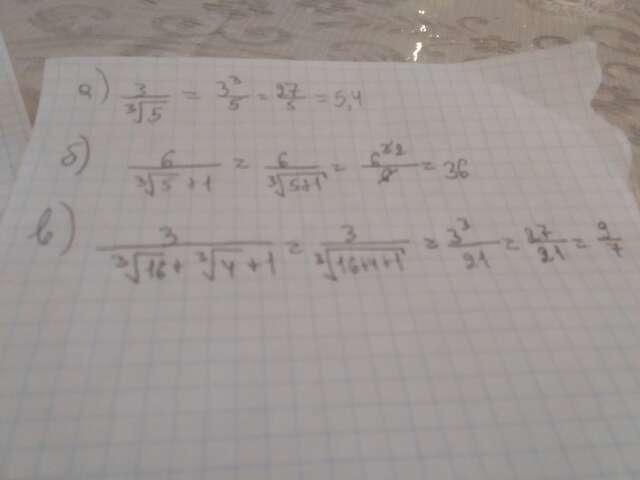 а) 3/∛5 = 3³/5 = 27/5 = 5,4
б) 6/(∛5 + 1) = 6/∛(5+1) = 6³²/6 = 36
в) 3/(∛16 + ∛4 + 1) = 3/∛(16+4+1) = 3³/21 = 27/21 = 9/7